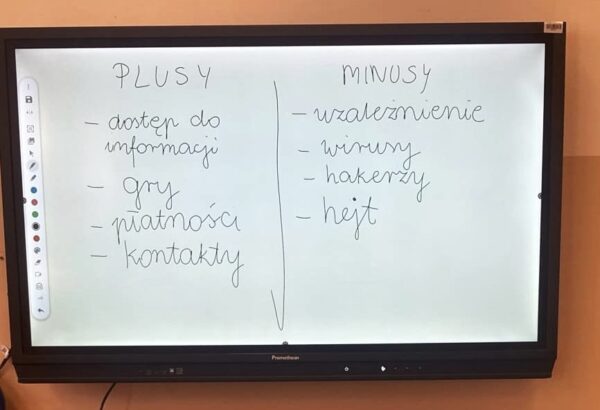 PLUSY
- dostęp do
informacji
- gry
- płatności
- kontakty
MINUSY
- uzależnienie
- wirusy
- hakerzy
- hejt
Promethean